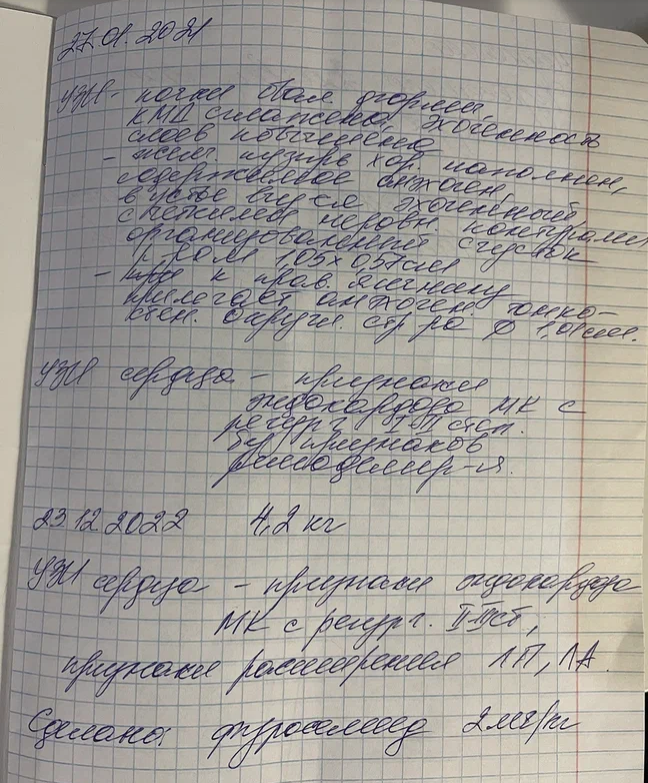 27.01.2021
УЗИ - почки боб. формы,
КМД снижена, эхогенность
слоев повышена
- желч. пузырь хор. наполнен,
содержимое анэхоген,
в устье визуал. эхогенный,
с нежилем неровн. контурами
организованный сгусток
р-ром 1,05х0,57см
- к прав. яичнику
прилегает анэхоген. тонко-
стен. округл. стр-ра ф 1,01см.
УЗИ сердца - признаки
эндокардоза МК с
регург. II-III степ.
без признаков
ремоделир-я.
23.12.2022 4,2 кг
УЗИ сердца - признаки эндокардоза
МК с регург. II-III ст,
признаки расширения ЛП, ЛА.
Сделано: фуросемид 2мг/кг